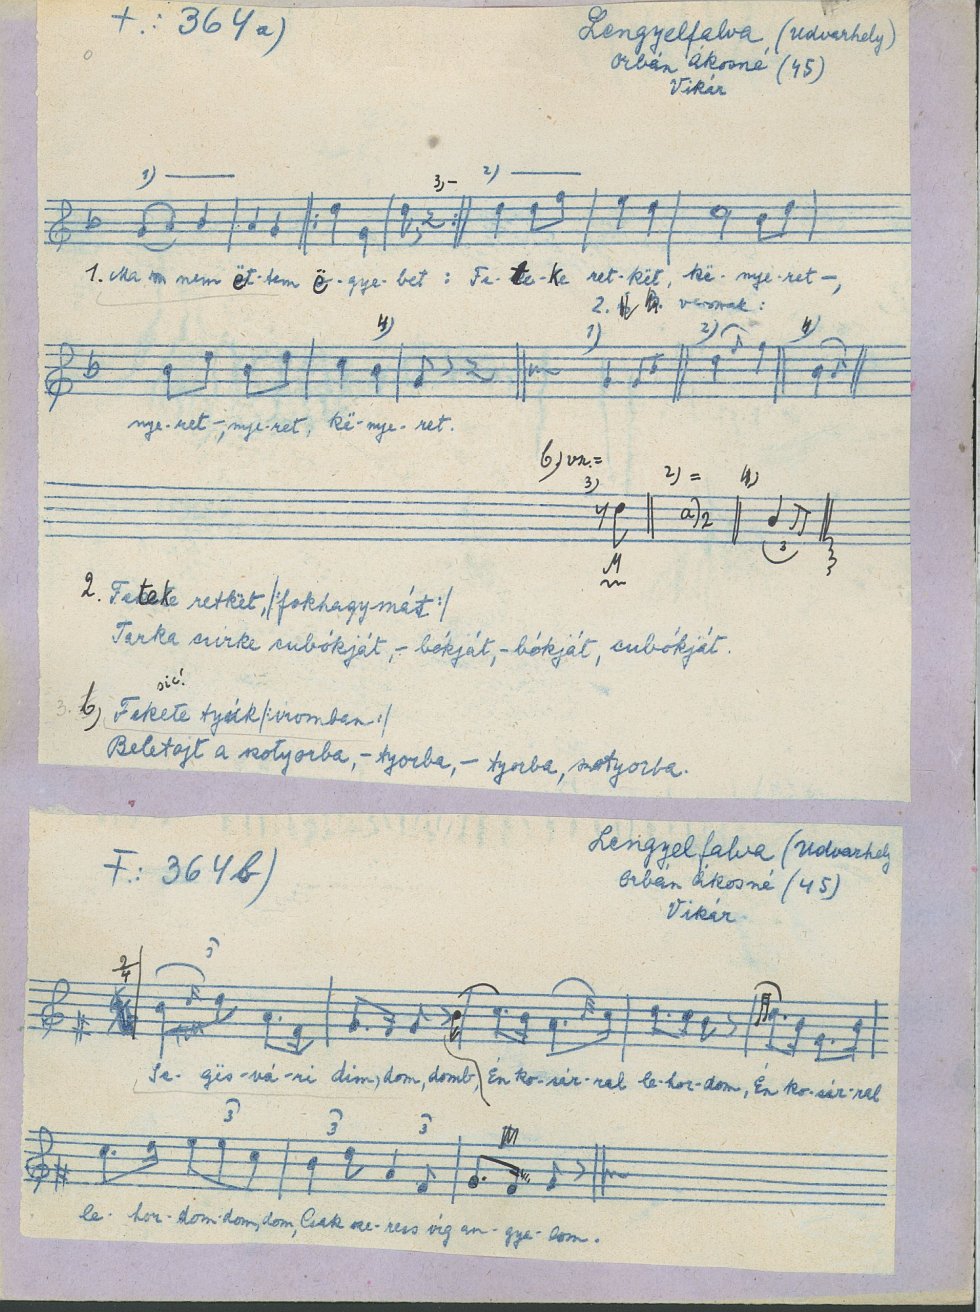 F.: 364a)
Lengyelfalva (Udvarhely)
Orbán Ákosné (45)
Vikár
1) 3,- 2)
1. Ma nem ët-tem ë-gye-bet : Fe-te-ke ret-kët, kë-nye-ret-,
2. versnek:
4) 1) 2) 4)
nye-ret-,nye-ret, kë-nye-ret.
b) vr.=
3) 2) = 4)
a) 2
3
M
2. Feteke retkët, /:fokhagymát:/
Tarka csirke csubókját,- bókját,- bókját, csubókját.
sic!
3. b) Fekete tyúk /:siromban:/
Beletojt a szotyorba, - tyorba, - tyorba, szotyorba.
F.: 364b)
Lengyelfalva (Udvarhely
Orbán Ákosné (45)
Vikár
2/4 3
Se-gës-vá-ri dim, dom, domb, Én ko-sár-ral le-hor-dom, Én ko-sár-ral
3 3 3
le-hor-dom-dom, dom, Csak sze-ress víg an-gya-lom.